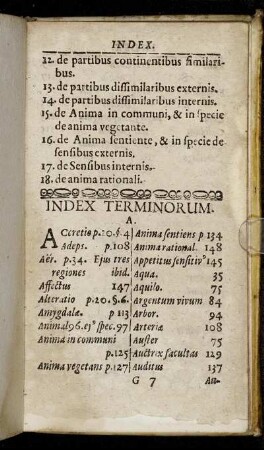 INDEX.
12. de partibus continentibus similari-
bus.
13. de partibus dissimilaribus externis.
14. de partibus dissimilaribus internis.
15. de Anima in communi, & in specie
de anima vegetante.
16. de Anima sentiente, & in specie de
sensibus externis.
17. de Sensibus internis.
18. de anima rationali.
INDEX TERMINORUM.
A.
ACcretio p.20.§.4
Adeps. p.108
Aër. p.34. Ejus tres
regiones ibid.
Affectus 147
Alteratio p.20.§.6.
Amygdalæ p 113
Animal 96. ej⁹ spec. 97
Anima in communi
p.125
Anima vegetans p.127
Anima sentiens p 134
Anima rational. 148
Appetitus sensitiv⁹ 145
Aqua. 35
Aquilo. 75
Argentum vivum 84
Arbor. 94
Arteriæ 108
Auster 75
Auctrix facultas 129
Auditus 137
G 7
Au-